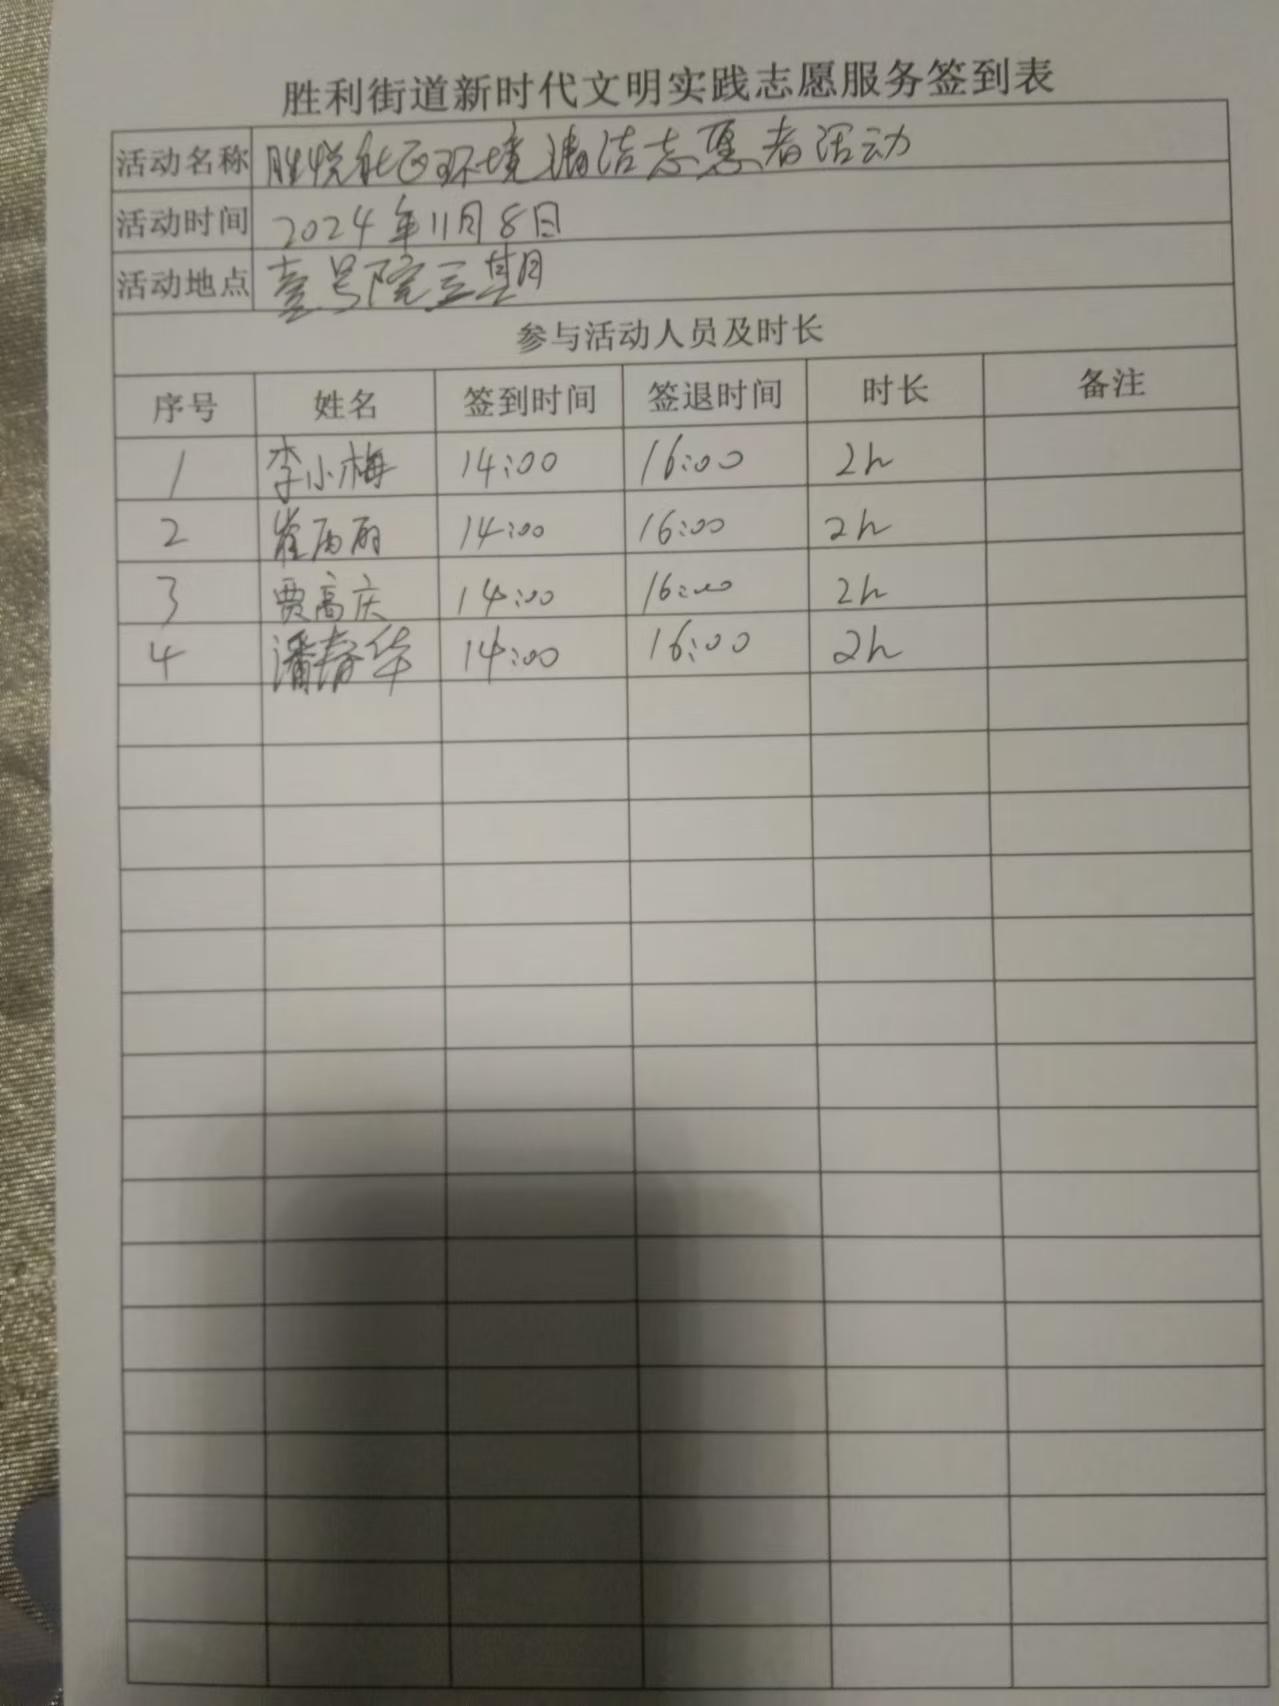 胜利街道新时代文明实践志愿服务签到表
活动名称 胜悦社区环境清洁志愿者活动
活动时间 2024年11月8日
活动地点 壹号院三期
参与活动人员及时长
序号 姓名 签到时间 签退时间 时长 备注
1 李小梅 14:00 16:00 2h
2 14:00 16:00 2h
3 贾高庆 14:00 16:00 2h
4 潘春华 14:00 16:00 2h